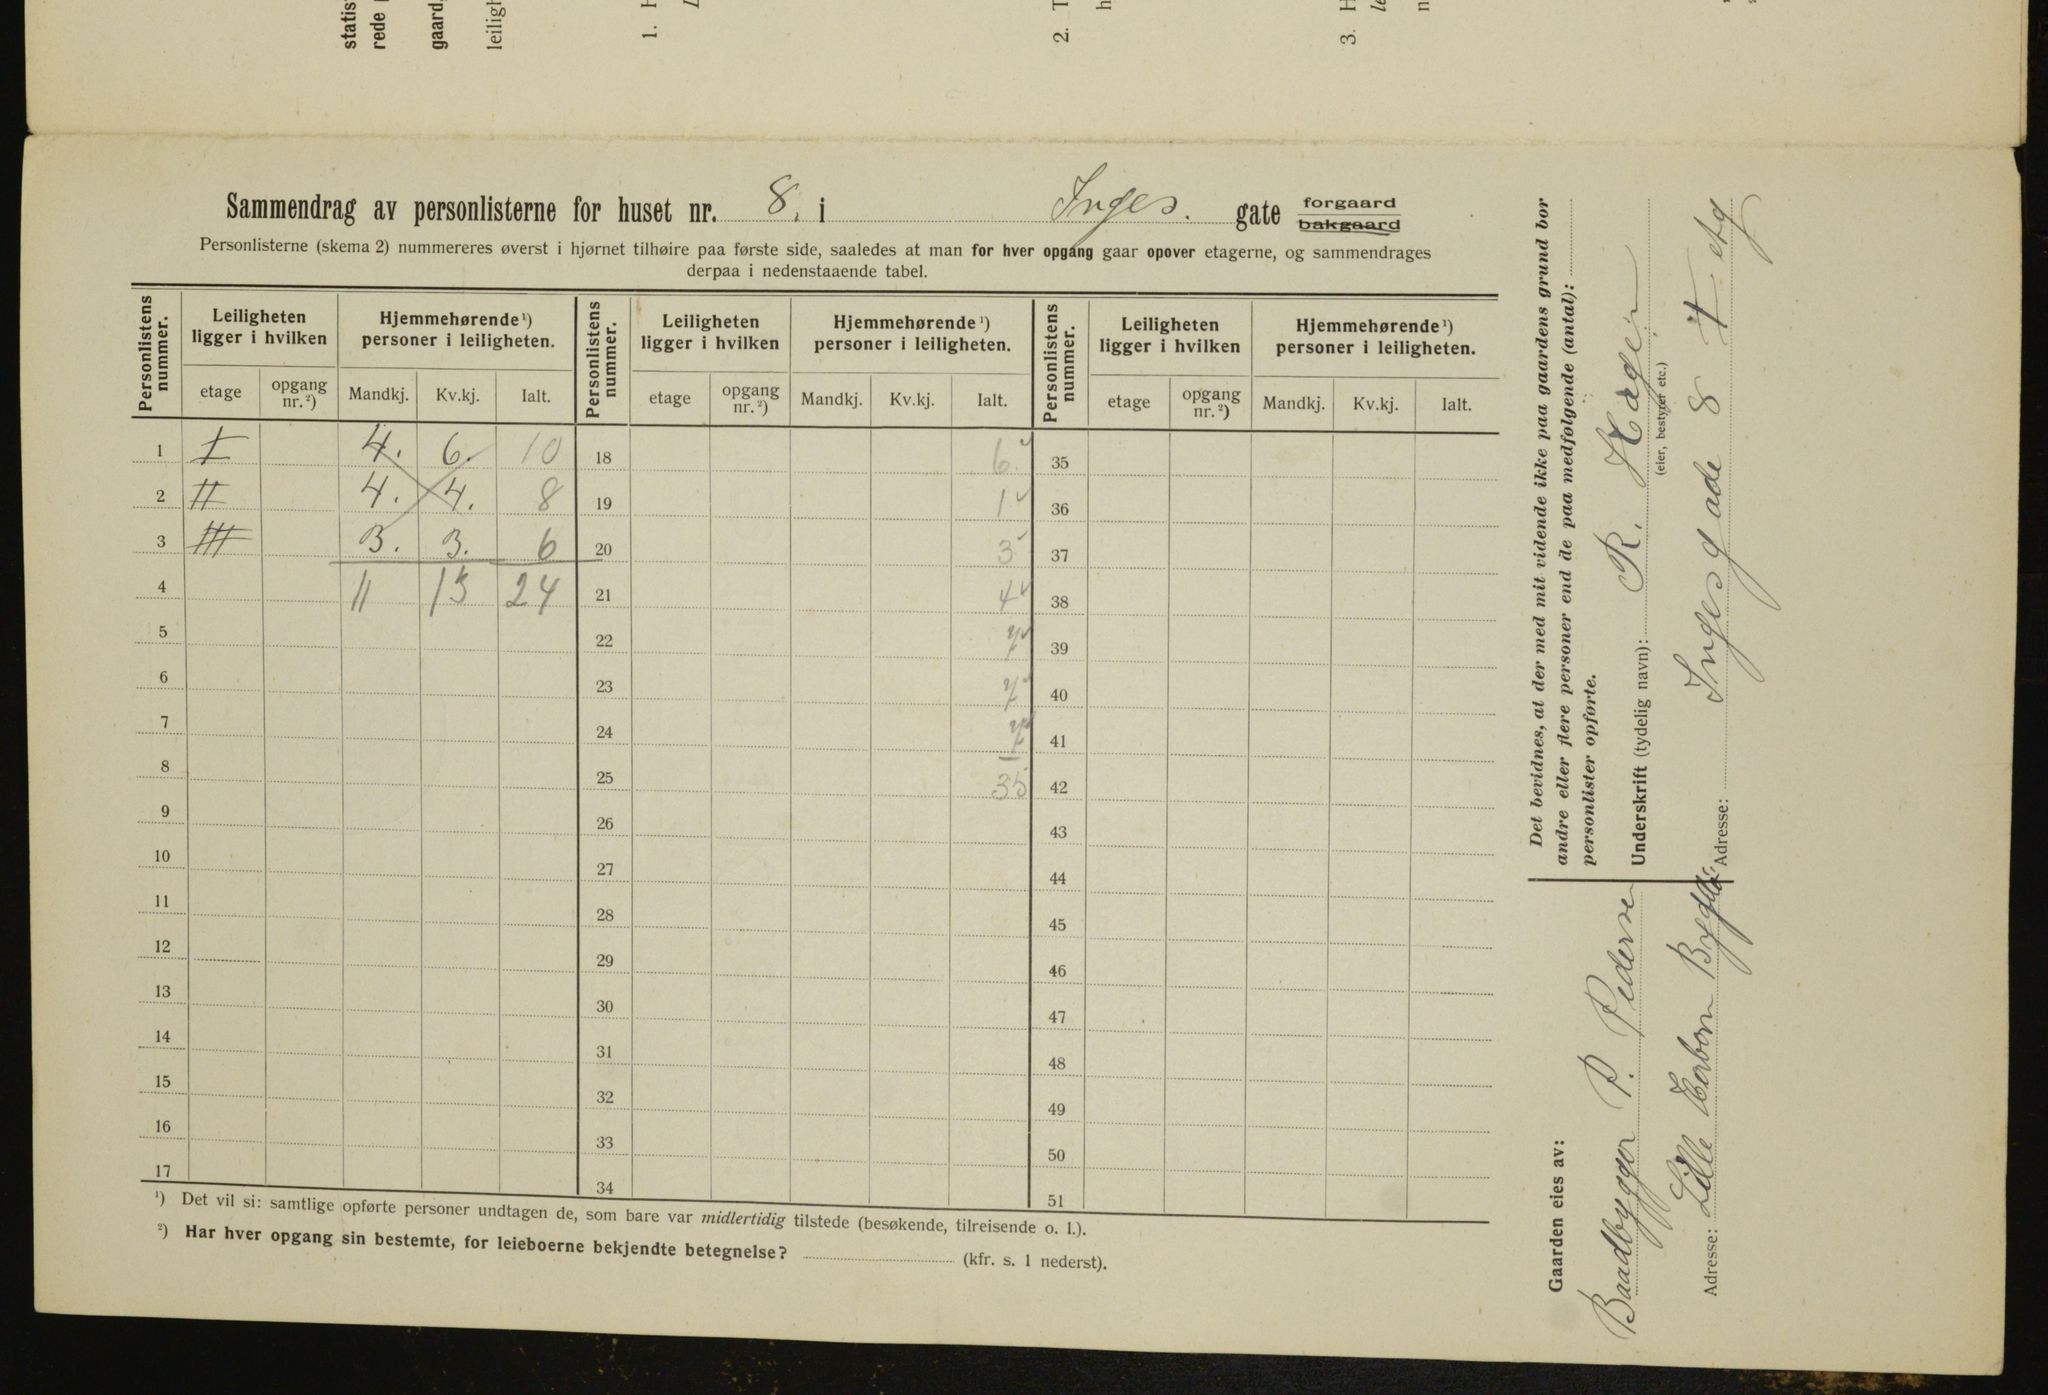 statis
rede
gaard,
leiligh
1. H
L
2. T
h
3. H
le
n
Sammendrag av personlisterne for huset nr. 8. i Inges. gate forgaard
bakgaard
Personlisterne (skema 2) nummereres øverst i hjørnet tilhøire paa første side, saaledes at man for hver opgang gaar opover etagerne, og sammendrages
derpaa i nedenstaaende tabel.
Personlistens nummer. Leiligheten ligger i hvilken Hjemmehørende ¹) personer i leiligheten. Personlistens nummer. Leiligheten ligger i hvilken Hjemmehørende ¹) personer i leiligheten. Personlistens nummer. Leiligheten ligger i hvilken Hjemmehørende ¹) personer i leiligheten.
etage opgang nr. ²) Mandkj. Kv.kj. Ialt. etage opgang nr. ²) Mandkj. Kv.kj. Ialt. etage opgang nr. ²) Mandkj. Kv.kj. Ialt.
1 I 4. 6. 10 18 6 35
2 II 4. 4. 8 19 1 36
3 III 3. 3. 6 20 3 37
4 11 13 24 21 4 38
5 22 7 39
6 23 7 40
7 24 7 41
8 25 35 42
9 26 43
10 27 44
11 28 45
12 29 46
13 30 47
14 31 48
15 32 49
16 33 50
17 34 51
¹) Det vil si: samtlige opførte personer undtagen de, som bare var midlertidig tilstede (besøkende, tilreisende o. l.).
²) Har hver opgang sin bestemte, for leieboerne bekjendte betegnelse? (kfr. s. 1 nederst).
Det bevidnes, at der med mit vidende ikke paa gaardens grund bor
andre eller flere personer end de paa medfølgende (antal):
personlister opførte.
Underskrift (tydelig navn): R. Hagen
(eier, bestyrer etc.)
Adresse: Inges gade 8 4 etg
Gaarden eies av:
Baadbygger P. Pedersen
Adresse: Lille Herbern